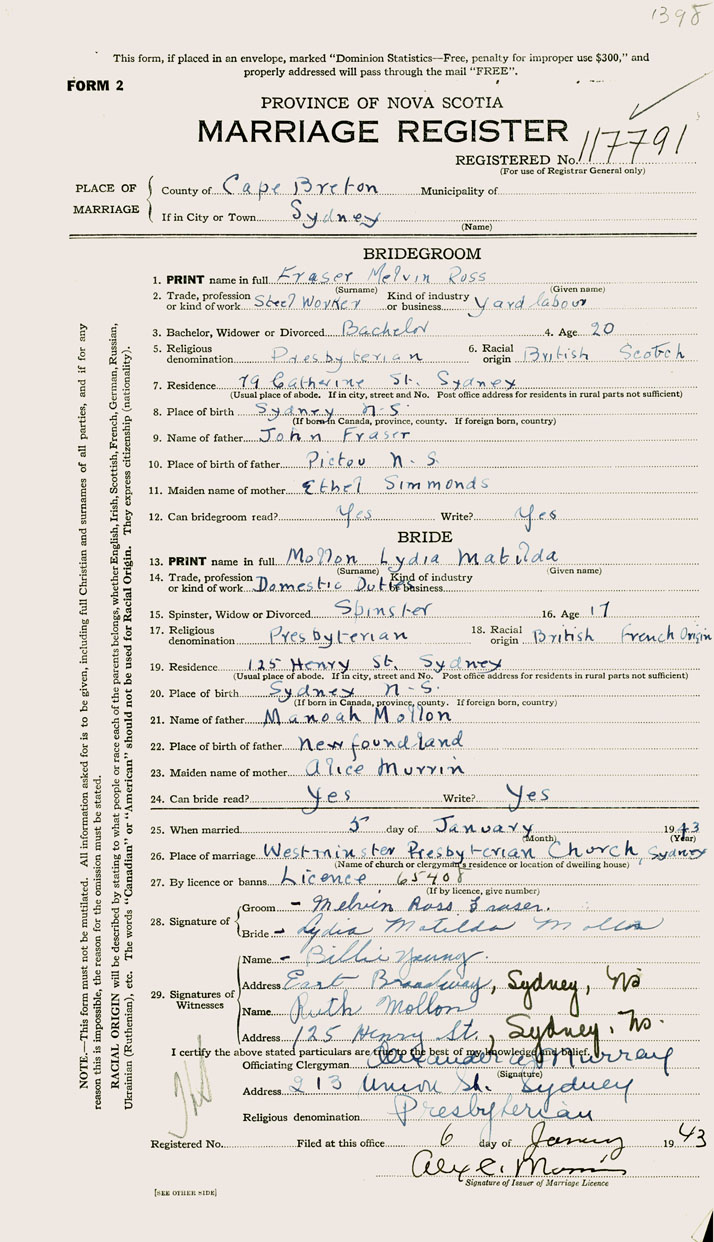 1398
This form, if placed in an envelope, marked "Dominion Statistics—Free, penalty for improper use $300," and
properly addressed will pass through the mail "FREE".
FORM 2
PROVINCE OF NOVA SCOTIA
MARRIAGE REGISTER
REGISTERED No. 117791
(For use of Registrar General only)
PLACE OF MARRIAGE
County of Cape Breton Municipality of
If in City or Town Sydney
(Name)
BRIDEGROOM
1. PRINT name in full Fraser Melvin Ross
(Surname) (Given name)
2. Trade, profession or kind of work Steel Worker Kind of industry or business. Yard labour
3. Bachelor, Widower or Divorced Bachelor 4. Age 20
5. Religious denomination Presbyterian 6. Racial origin British Scotch
7. Residence 79 Catherine St. Sydney
(Usual place of abode. If in city, street and No. Post office address for residents in rural parts not sufficient)
8. Place of birth Sydney N-S.
(If born in Canada, province, county. If foreign born, country)
9. Name of father John Fraser
10. Place of birth of father Pictou N-S.
11. Maiden name of mother Ethel Simmonds
12. Can bridegroom read? Yes Write? Yes
BRIDE
13. PRINT name in full Mollon Lydia Matilda
(Surname) (Given name)
14. Trade, profession or kind of work Domestic Duties Kind of industry or business
15. Spinster, Widow or Divorced Spinster 16. Age 17
17. Religious denomination Presbyterian 18. Racial origin British French Origin
19. Residence 125 Henry St. Sydney
(Usual place of abode. If in city, street and No. Post office address for residents in rural parts not sufficient)
20. Place of birth Sydney N-S.
(If born in Canada, province, county. If foreign born, country)
21. Name of father Manoah Mollon
22. Place of birth of father Newfoundland
23. Maiden name of mother Alice Murrin
24. Can bride read? Yes Write? Yes
25. When married 5 day of January 1943
(Month) (Year)
26. Place of marriage Westminster Presbyterian Church, Sydney
(Name of church or clergyman's residence or location of dwelling house)
27. By licence or banns Licence 65408
(If by licence, give number)
28. Signature of
Groom - Melvin Ross Fraser.
Bride - Lydia Matilda Mollon
29. Signatures of Witnesses
Name - Billie Young.
Address East Broadway, Sydney, NS
Name Ruth Mollon
Address 125 Henry St., Sydney, NS.
I certify the above stated particulars are true to the best of my knowledge and belief.
Officiating Clergyman Alexander Murray
(Signature)
Address 213 Union St. Sydney
Religious denomination Presbyterian
Registered No. Filed at this office 6 day of January 1943
Signature of Issuer of Marriage Licence
[SEE OTHER SIDE]
NOTE.—This form must not be mutilated. All information asked for is to be given, including full Christian and surnames of all parties, and if for any
reason this is impossible, the reason for the omission must be stated.
RACIAL ORIGIN will be described by stating to what people or race each of the parents belongs, whether English, Irish, Scottish, French, German, Russian,
Ukrainian (Ruthenian), etc. The words "Canadian" or "American" should not be used for Racial Origin. They express citizenship (nationality).